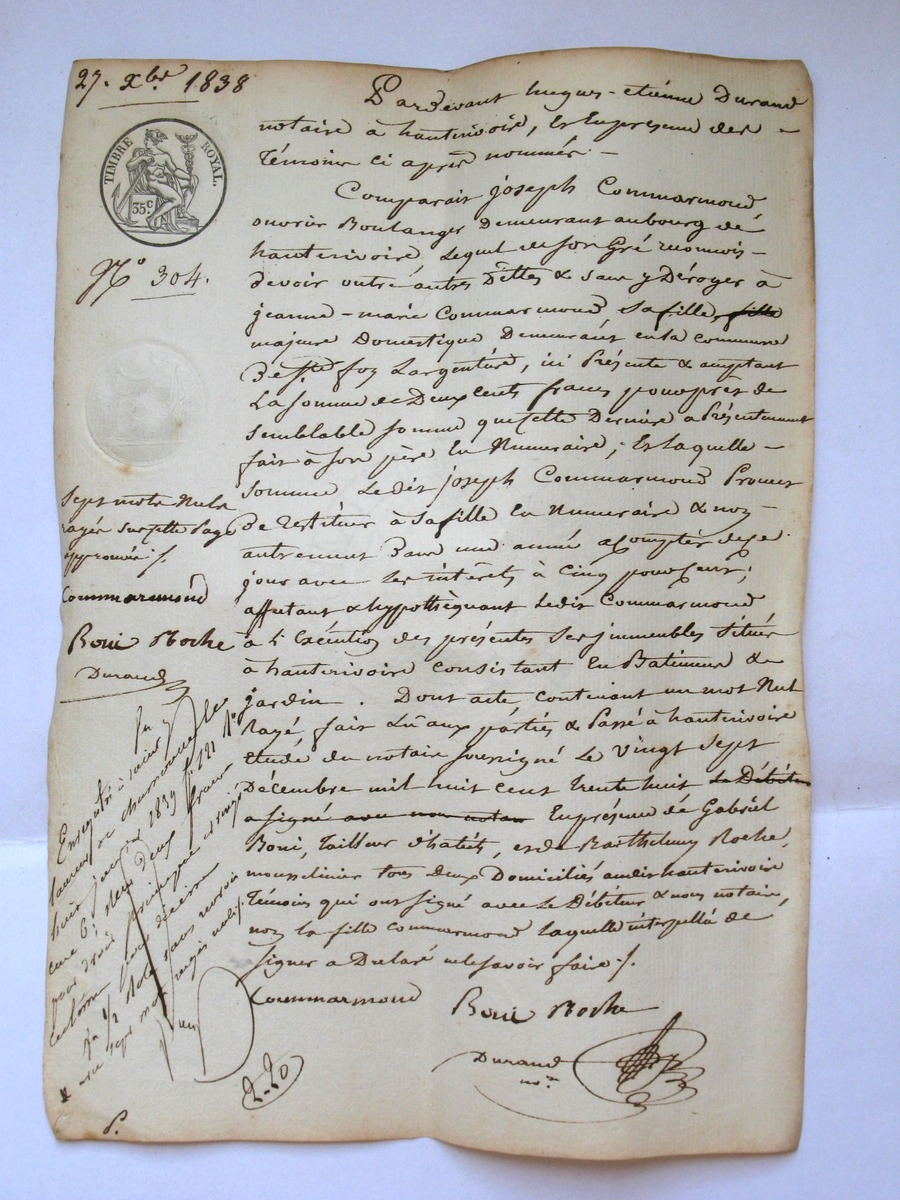 27. Xbre 1838
TIMBRE ROYAL.
35 c.
N° 304.
Pardevant hugues-étienne Durand
notaire à hauterivoire, Et En présence des
Témoins ci après nommés.
Comparait joseph Commarmond
ouvrier Boulanger Demeurant au bourg dé
hauterivoire, Lequel de son Gré reconnois
devoir outré autres Déttes & sans y Déroger à
jeanne-marie Commarmond sa fille, fille
majeure Domestique Demeurant en la commune
De Ste foy Largentière, ici Présente & acceptant
La somme de Deux Cents francs pour prêt de
semblable somme que cette Dernière a Présentement
fait à son père En Numeraire; Et Laquelle
somme Ledit joseph Commarmond Promet
De restituer à sa fille En Numeraire & non
autrement Dans une année à Compter de ce
jour avec Les intérêts à Cinq pour Cent;
affectant & hypothèquant Ledit Commarmond
à L'Exécution des présentes Ses immeubles Situés
à hauterivoire consistant En Batiment &
jardin. Dont acte, contenant un mot Nul
Rayé, fait Lu aux parties & Passé à hauterivoire
Etude du notaire soussigné Le Vingt Sept
Décembre mil huit Cent Trente huit Le Débiteur
a signé avec nous notaire En présence dé Gabriel
Boni, Tailleur d'habits, et de Barthelemy Roche,
mousselinier tous deux Domiciliés audit hauterivoire
Témoins qui ont signé avec Le Débiteur & nous notaire,
non la fille Commarmond Laquelle intérpellée de
signer a Déclaré ne le savoir faire ./.
Commarmond
Boni Roche
Durand
nre
Sept mots Nuls
rayés sur cette Page
approuvés ./.
Commarmond
Boni Roche
Durand
Enregistré à Saint
Laurent de Chamousset le
huit janvier 1839 f° 121 R°
case 6. Reçu deux francs
pour droit principal et vingt
centimes pour décime
sans renvoi
avec sept mots rayés nuls ./.
2-20